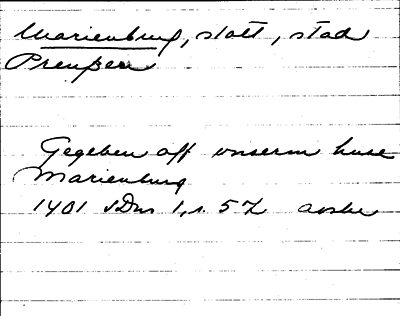 Marienburg, slott, stad
Preußen
Gegeben aff unserm huse
Marienburg
1401 SDns 1, s. 57 avskr